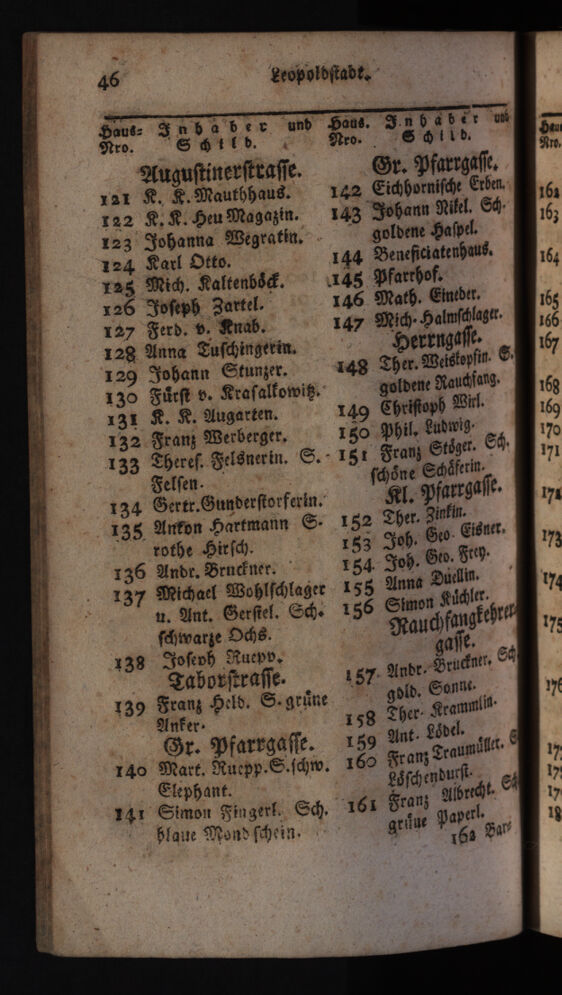 46
Leopoldstadt.
Haus= Inhaber und
Nro. Schild.
Augustinerstrasse.
121 K. K. Mauthhaus.
122 K. K. Heu Magazin.
123 Johanna Wegratin.
124 Karl Otto.
125 Mich. Kaltenböck.
126 Joseph Zartel.
127 Ferd. v. Knab.
128 Anna Tuschingerin.
129 Johann Stunzer.
130 Fürst v. Krasalkowitz.
131 K. K. Augarten.
132 Franz Werberger.
133 Theres. Felsnerin. S.
Felsen.
134 Gertr. Gunderstorferin.
135 Anton Hartmann S.
rothe Hirsch.
136 Andr. Bruckner.
137 Michael Wohlschlager
u. Ant. Gerstel. Sch.
schwarze Ochs.
138 Joseph Ruepp.
Taborstrasse.
139 Franz Held. S. grüne
Anker.
Gr. Pfarrgasse.
140 Mart. Ruepp. S. schw.
Elephant.
141 Simon Fingerl. Sch.
blaue Mondschein.
Haus. Inhaber und
Nro. Schild.
Gr. Pfarrgasse.
142 Eichhornische Erben.
143 Johann Nikel. Sch.
goldene Haspel.
144 Beneficiatenhaus.
145 Pfarrhof.
146 Math. Eineder.
147 Mich. Halmschlager.
Herrngasse.
148 Ther. Weiskopfin. S.
goldene Rauchfang.
149 Christoph Wirl.
150 Phil. Ludwig.
151 Franz Stöger. Sch.
schöne Schäferin.
Kl. Pfarrgasse.
152 Ther. Zinkin.
153 Joh. Geo. Eisner.
154 Joh. Geo. Frey.
155 Anna Duellin.
156 Simon Küchler.
Rauchfangkehrer
gasse.
157 Andr. Bruckner. Sch
gold. Sonne.
158 Ther. Krammlin.
159 Ant. Lödel.
160 Franz Traumüller. S
Löschendurst.
161 Franz Albrecht. Sch
grüne Paperl.
162 Bar=
Nro.
162
163
164
165
166
167
168
169
170
171
173
174
175